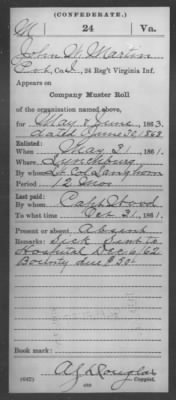 (CONFEDERATE.)
M 24 Va.
John W. Martin
Pvt, Co. I, 24 Reg't Virginia Inf.
Appears on
Company Muster Roll
of the organization named above,
for May & June, 1863.
dated June 30, 1863
Enlisted:
When May 31, 1861.
Where Lynchburg
By whom Lt Col Langhorn
Period 12 Mos
Last paid:
By whom Capt Wood
To what time Oct 31, 1861.
Present or absent Absent
Remarks: Sick Sent to
Hospital Dec 9/62
Bounty due $50.
Book mark:
A J Douglas
(642) Copyist.